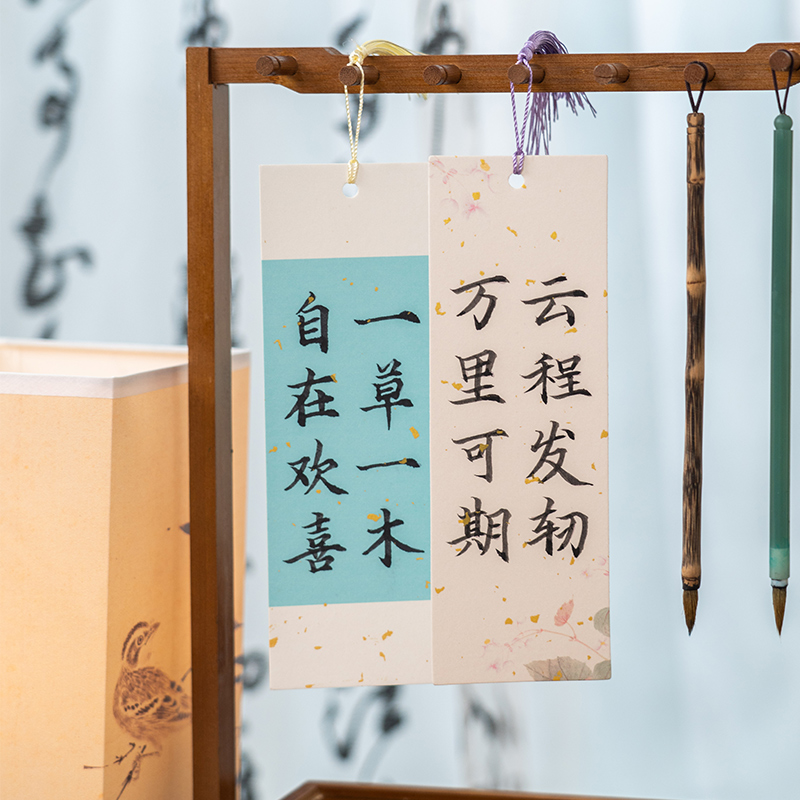 一草一木
自在欢喜
云程发轫
万里可期